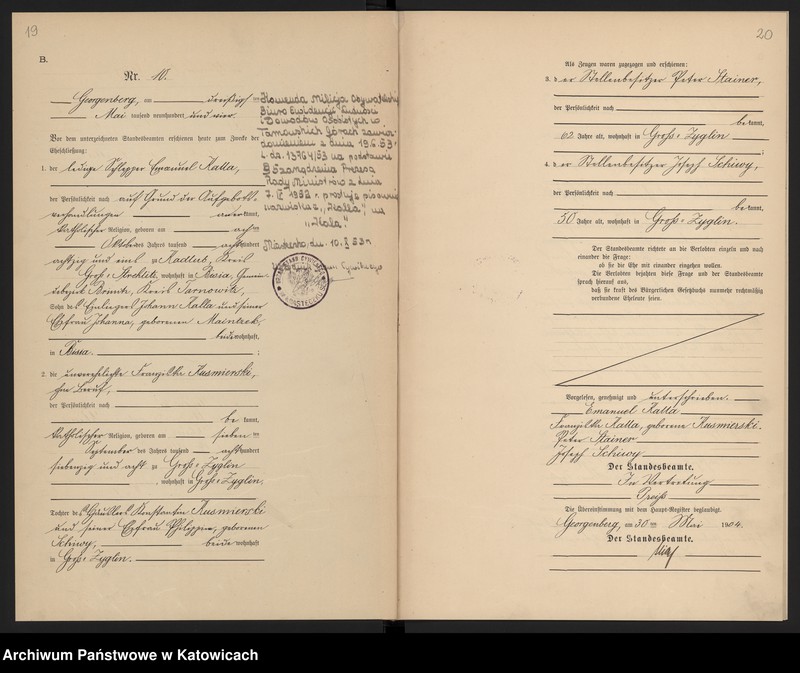 19
B.
Nr. 10.
Georgenberg, am dreißigsten
Mai tausend neunhundert und vier.
Vor dem unterzeichneten Standesbeamten erschienen heute zum Zwecke der
Eheschließung:
1. der ledige Schlepper Emanuel Kalla,
der Persönlichkeit nach auf Grund der Aufgebots-
verhandlungen anerkannt,
katholischer Religion, geboren am achten
Oktober des Jahres tausend achthundert
achtzig und eins zu Kadlub, Kreis
Groß-Strehlitz, wohnhaft in Bisia, Gemein-
debezirk Bonitz, Kreis Tarnowitz,
Sohn des Johann Kalla und seiner
Ehefrau Johanna, geborenen Maintzek,
beide wohnhaft
in Bisia.
2. die unverehelichte Franziska Kusmierski,
ohne Beruf,
der Persönlichkeit nach
be kannt,
katholischer Religion, geboren am sieben ten
September des Jahres tausend achthundert
siebenzig und acht zu Groß-Zyglin
, wohnhaft in Groß-Zyglin,
Tochter des Häuslers Konstantin Kusmierski
und seiner Ehefrau Philippine, geborenen
Schwoy, beide wohnhaft
in Groß-Zyglin.
Komenda Milicja Obywatelskiej
Biuro Ewidencji Ludności
i Dowodów Osobistych w
Tarnowskich Górach zawia-
domieniem z dnia 19.6.53r
L. dz. 13764/53 na podstawie
Rady Ministrów z dnia
1952 r. prostuje pisownię
nazwiska z „Kalla", na
„Kala."
Miasteczko, dn. 10.X 53r
20
Als Zeugen waren zugezogen und erschienen:
3. der Stellenbesitzer Peter Stainer,
der Persönlichkeit nach
be kannt,
62 Jahre alt, wohnhaft in Groß-Zyglin
;
4. der Stellenbesitzer Josef Schwoy,
der Persönlichkeit nach
be kannt,
50 Jahre alt, wohnhaft in Groß-Zyglin.
Der Standesbeamte richtete an die Verlobten einzeln und nach
einander die Frage:
ob sie die Ehe mit einander eingehen wollen.
Die Verlobten bejahten diese Frage und der Standesbeamte
sprach hierauf aus,
daß sie kraft des Bürgerlichen Gesetzbuchs nunmehr rechtmäßig
verbundene Eheleute seien.
Vorgelesen, genehmigt und unterschrieben.
Emanuel Kalla
Franziska Kalla, geborene Kusmierski.
Peter Stainer
Josef Schwoy
Der Standesbeamte.
In Vertretung
Die Übereinstimmung mit dem Haupt-Register beglaubigt.
Georgenberg, am 30 ten Mai 1904.
Der Standesbeamte.
Archiwum Państwowe w Katowicach